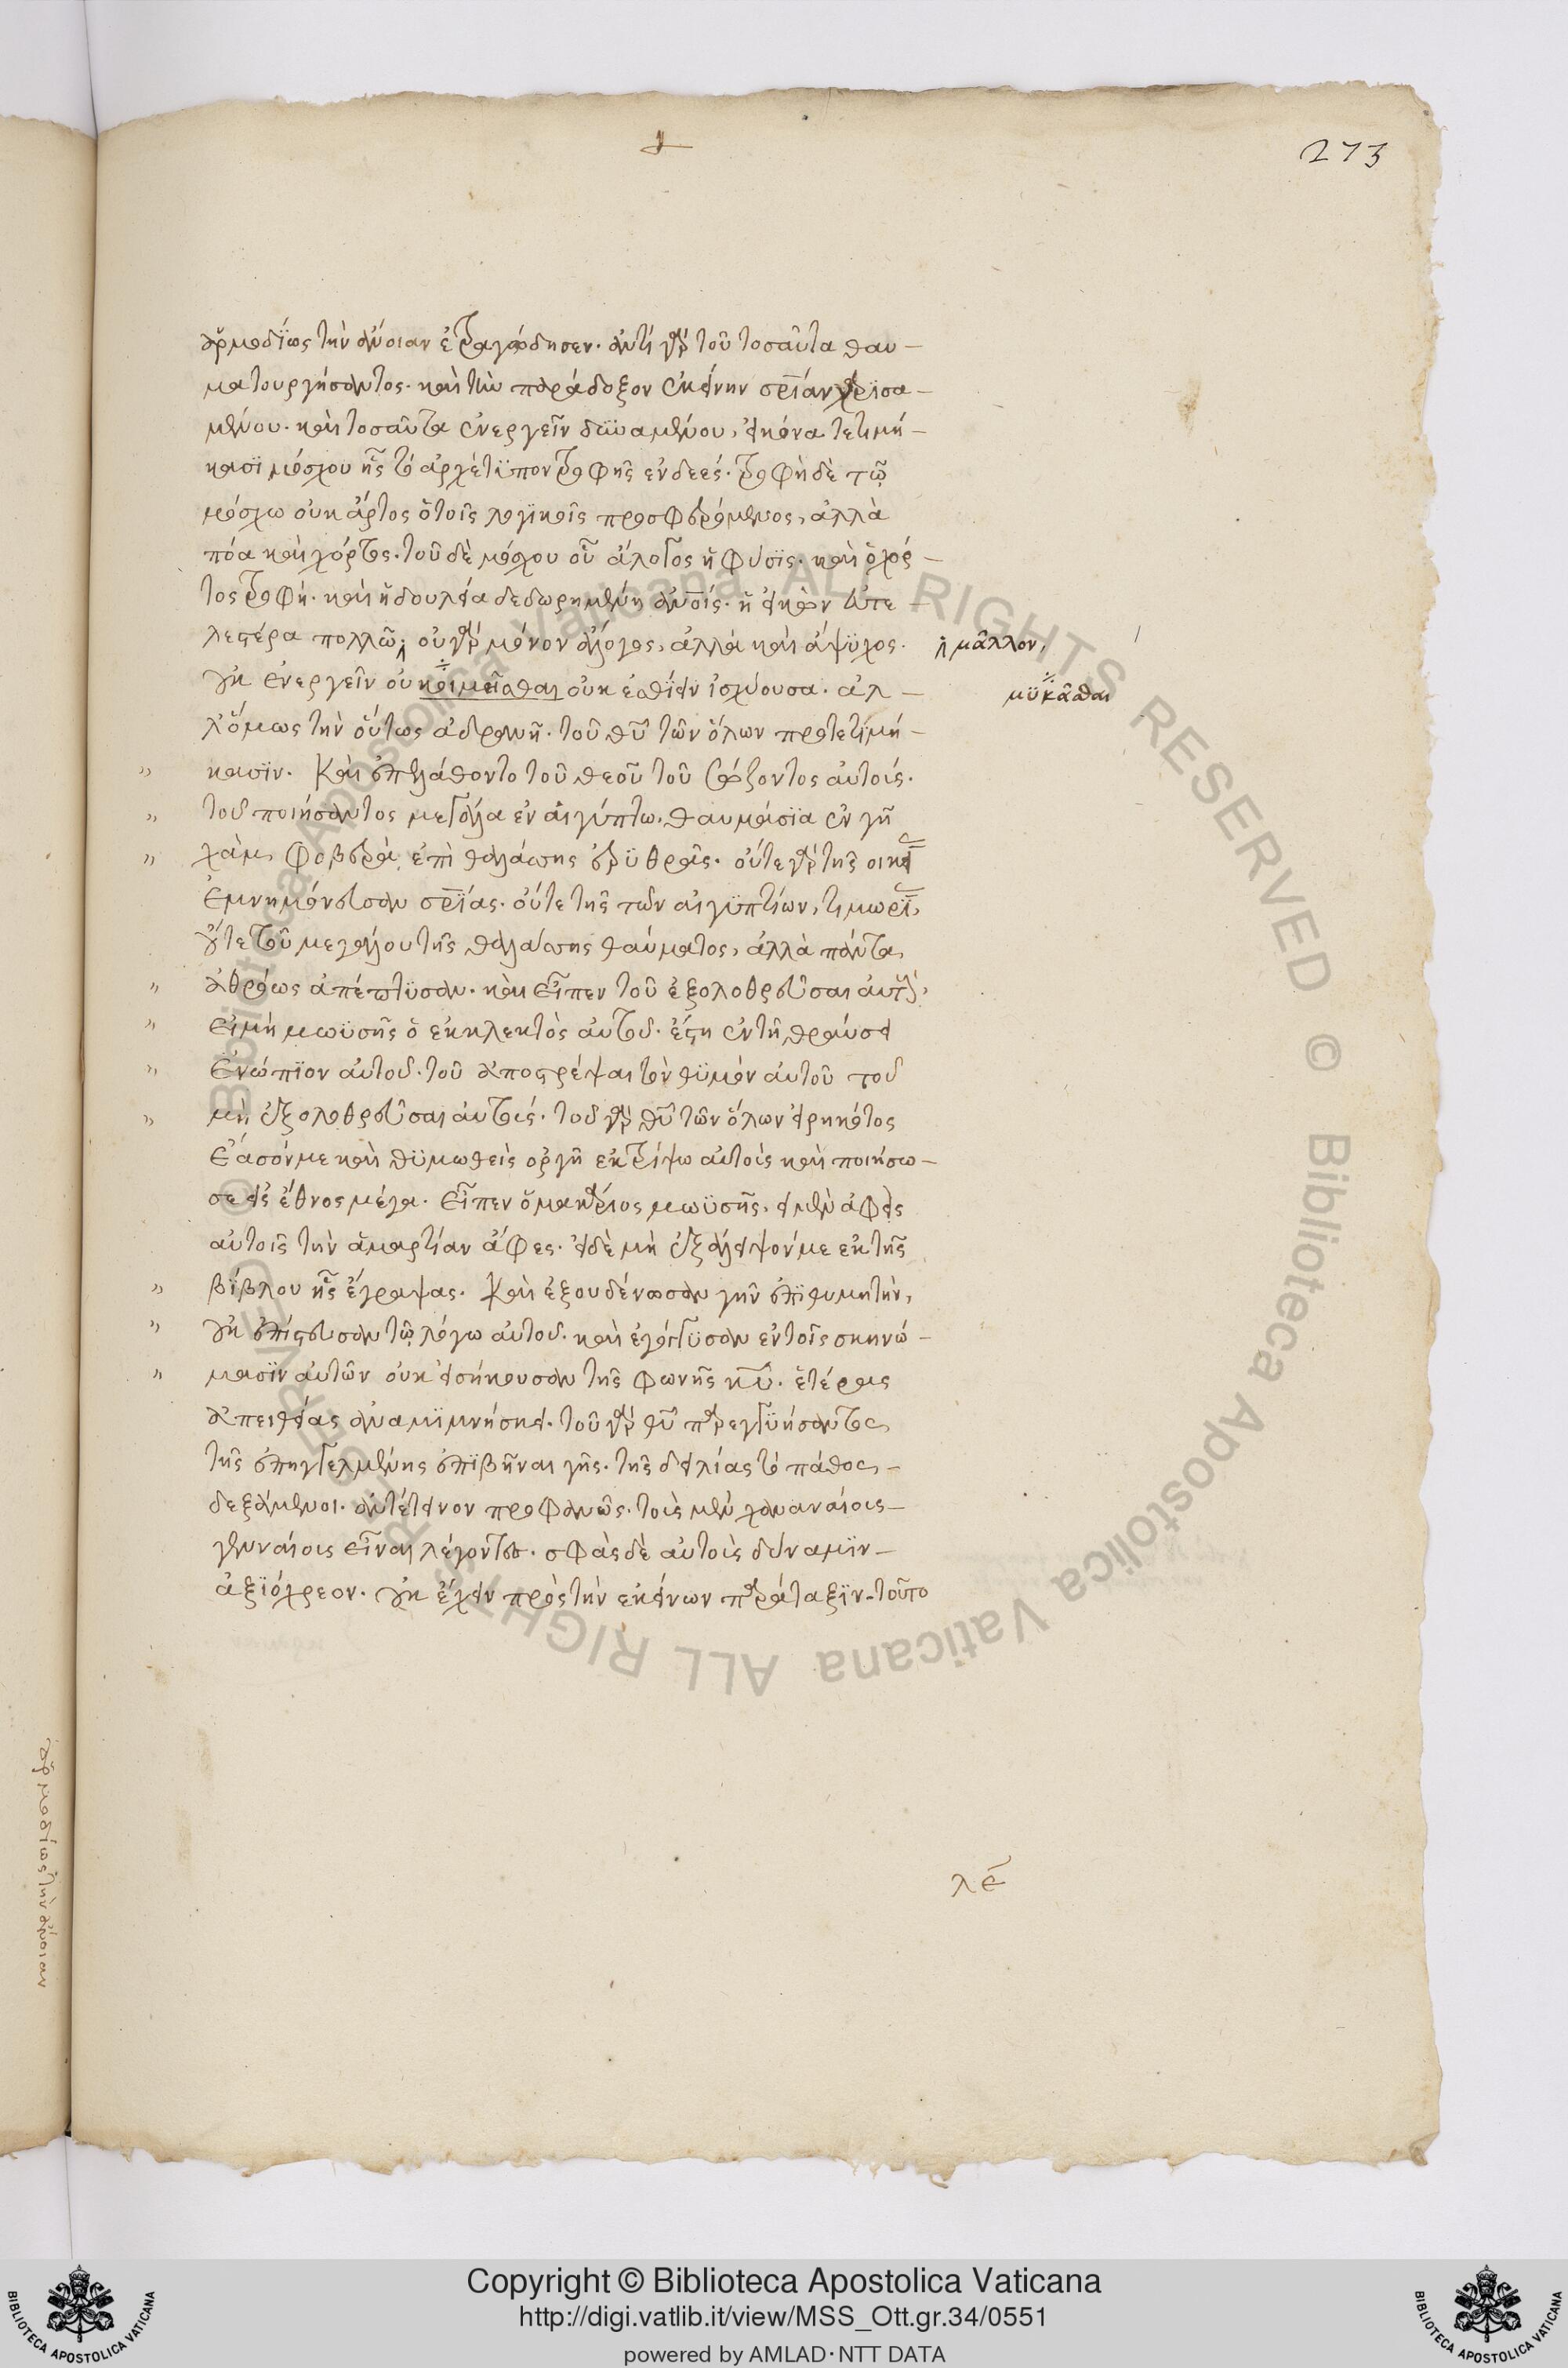 273
ἁρμοδίως τὴν ἄνοιαν ἐτραγώδησεν. ἀντὶ γὰρ τοῦ τοσαῦτα θαυ-
ματουργήσαντος. καὶ τὴν παράδοξον ἐκείνην σρίαν χαρισα-
μένου. καὶ τοσαῦτα ἐνεργεῖν δυναμένου, εἰκόνα τετιμή-
κασι μόσχου ἧς τὸ ἀρχέτυπον τροφῆς ἐνδεές. τροφὴ δὲ τῶ
μόσχω οὐκ ἄρτος ὁ τοῖς λογικοῖς προσφερόμενος, ἀλλὰ
πόα καὶ χόρτος. τοῦ δὲ μόσχου οὗ ἄλογος ἡ φύσις. καὶ ὁ χόρ-
τος τροφὴ. καὶ ἡ δουλεία δεδωρημένη ἀνοις. ἡ εἰκὼν εὐτε-
λεστέρα πολλῶ, οὐ γὰρ μόνον ἄλογος, ἀλλὰ καὶ ἄψυχος.
ἡ μᾶλλον,
οὐκ ἐνεργεῖν οὐ κοιμεῖσθαι οὐκ ἐσθίειν ἰσχύουσα. ἀλ-
μυκᾶσθαι
λ' ὅμως τὴν οὕτως ἀδρανῆ. τοῦ θυ τῶν ὅλων προτετιμή-
κασιν. Καὶ ἐπελάθοντο τοῦ θεοῦ τοῦ σώζοντος αὐτούς.
τοῦ ποιήσαντος μεγάλα ἐν αἰγύπτω. θαυμάσια ἐν γῆ
χὰμ, φοβερὰ ἐπὶ θαλάσσης ἐρυθρᾶς. οὔτε γὰρ τῆς οἰκείας
ἐμνημόνευσαν σρίας. οὔτε τῆς τῶν αἰγυπτίων, τιμωρίας,
οὔτε τοῦ μεγάλου τῆς θαλάσσης θαύματος, ἀλλὰ πάντα
ἀθρόως ἀπέπτυσαν. καὶ εἶπεν τοῦ ἐξολοθρεῦσαι αὐτούς,
εἰ μὴ μωϋσῆς ὁ ἐκκλεκτὸς αὐτοῦ. ἔστη ἐν τῆ θραύσει
ἐνώπιον αὐτοῦ. τοῦ ἀποστρέψαι τὸν θυμὸν αὐτοῦ τοῦ
μὴ ἐξολοθρεῦσαι αὐτούς. τοῦ γὰρ θυ τῶν ὅλων εἰρηκότος
ἔασόν με καὶ θυμωθεὶς ὀργῆ ἐκτρίψω αὐτοὺς καὶ ποιήσω-
σε εἰς ἔθνος μέγα. εἶπεν ὁ μακάριος μωϋσῆς, εἰ μὲν ἀφεὶς
αὐτοῖς τὴν ἁμαρτίαν ἄφες. εἰ δὲ μὴ ἐξάλειψόν με ἐκ τῆς
βίβλου ἧς ἔγραψας. Καὶ ἐξουδένωσαν γῆν ἐπιθυμητὴν,
οὐκ ἐπίστευσαν τῶ λόγω αὐτοῦ. καὶ ἐγόγγυσαν ἐν τοῖς σκηνώ-
μασιν αὐτῶν οὐκ εἰσήκουσαν τῆς φωνῆς κυ. ἑτέρας
ἀπειθείας ἀναμιμνήσκει. τοῦ γὰρ θυ παρεγγυήσαντος
τῆς ἐπηγγελμένης ἐπιβῆναι γῆς. τῆς δειλίας τὸ πάθος-
δεξάμενοι. ἀντέτεινον προφανῶς. τοὺς μὲν χαναναίους-
γενναίους εἶναι λέγοντες. σφᾶς δὲ αὐτοὺς δύναμιν-
ἀξιόχρεον. οὐκ ἔχειν πρὸς τὴν ἐκείνων παράταξιν. τοῦτο
λε
ἁρμοδίως τὴν ἄνοιαν
Copyright © Biblioteca Apostolica Vaticana
http://digi.vatlib.it/view/MSS_Ott.gr.34/0551
powered by AMLAD·NTT DATA